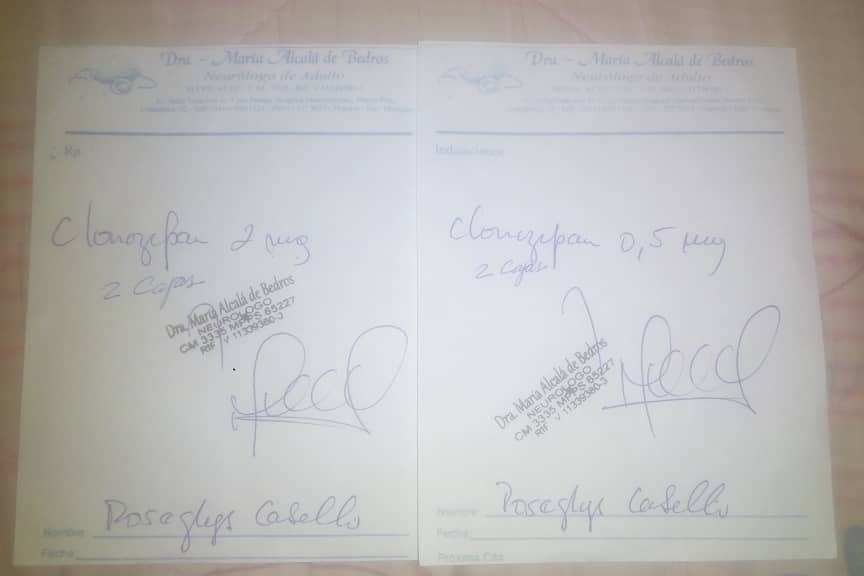 Dra. - María Alcalá de Bedros
Neurólogo de Adulto
Rp
Clonazepan 2 mg
2 Cajas
Dra. María Alcalá de Bedros
NEUROLOGO
CM 3335 MPPS 65227
RIF V 11339380-3
Roseglys Casello
Nombre
Fecha
Dra. - María Alcalá de Bedros
Neurólogo de Adulto
Indicaciones
Clonazepan 0,5 mg
2 Cajas
Dra. María Alcalá de Bedros
NEUROLOGO
CM 3335 MPPS 65227
RIF V 11339380-3
Nombre Roseglys Casello
Fecha
Próxima Cita